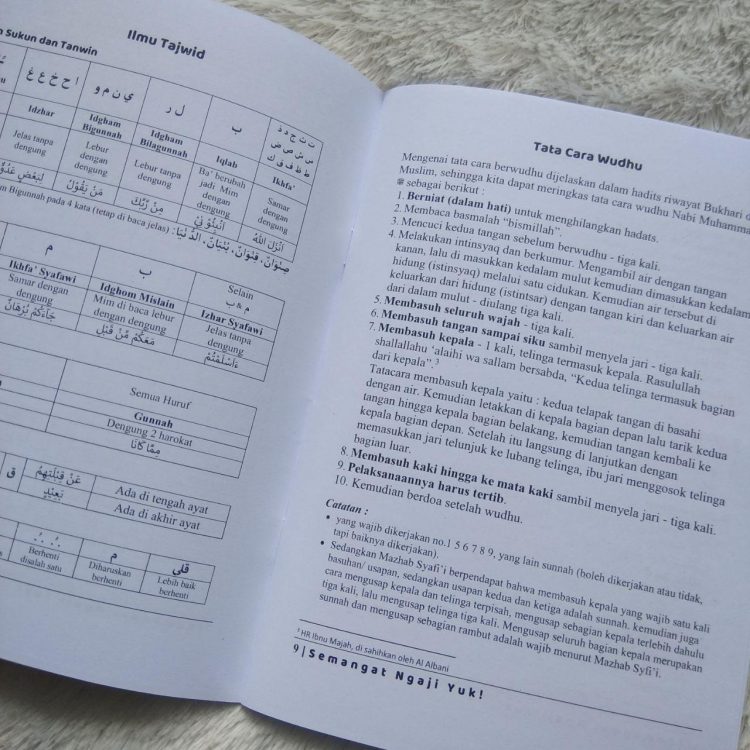 Ilmu Tajwid
Sukun dan Tanwin
ا ح خ ع غ
ي ن م و
ل ر
ب
Idzhar
Idgham Bigunnah
Idgham Bilagunnah
Iqlab
Ikhfa'
Jelas tanpa dengung
Lebur dengan dengung
Lebur tanpa dengung
Ba' berubah jadi Mim dengan dengung
Samar dengan dengung
مَنْ يَقُوْلُ
مِنْ رَبِّكَ
Bigunnah pada 4 kata (tetap di baca jelas) : صِنْوَانٌ، قِنْوَانٌ، بُنْيَانٌ، الدُّنْيَا
م
ب
Selain م & ب
Ikhfa' Syafawi
Idghom Mislain
Izhar Syafawi
Samar dengan dengung
Mim di baca lebur dengan dengung
Jelas tanpa dengung
جَاءَكُمْ بُرْهَانٌ
مَعَكُمْ مِّنْ قَبْلِ
ءَاَسْلَمْتُمْ
Semua Huruf
Gunnah
Dengung 2 harokat
مِمَّا كَانَا
عَنْ قِبْلَتِهِمُ
Ada di tengah ayat
بَعِيْدٍ
Ada di akhir ayat
م
قلى
Berhenti disalah satu
Diharuskan berhenti
Lebih baik berhenti
Tata Cara Wudhu
Mengenai tata cara berwudhu dijelaskan dalam hadits riwayat Bukhari
Muslim, sehingga kita dapat meringkas tata cara wudhu Nabi Muhammad
ﷺ sebagai berikut :
1. Berniat (dalam hati) untuk menghilangkan hadats.
2. Membaca basmalah “bismillah”.
3. Mencuci kedua tangan sebelum berwudhu - tiga kali.
4. Melakukan intinsyaq dan berkumur. Mengambil air dengan tangan
kanan, lalu di masukkan kedalam mulut kemudian dimasukkan kedalam
hidung (istinsyaq) melalui satu cidukan. Kemudian air tersebut di
keluarkan dari hidung (istintsar) dengan tangan kiri dan keluarkan air
dari dalam mulut - diulang tiga kali.
5. Membasuh seluruh wajah - tiga kali.
6. Membasuh tangan sampai siku sambil menyela jari - tiga kali.
7. Membasuh kepala - 1 kali, telinga termasuk kepala. Rasulullah
shallallahu ‘alaihi wa sallam bersabda, “Kedua telinga termasuk bagian
dari kepala”.³
Tatacara membasuh kepala yaitu : kedua telapak tangan di basahi
dengan air. Kemudian letakkan di kepala bagian depan lalu tarik kedua
tangan hingga kepala bagian belakang, kemudian tangan kembali ke
kepala bagian depan. Setelah itu langsung di lanjutkan dengan
memasukkan jari telunjuk ke lubang telinga, ibu jari menggosok telinga
bagian luar.
8. Membasuh kaki hingga ke mata kaki sambil menyela jari - tiga kali.
9. Pelaksanaannya harus tertib.
10. Kemudian berdoa setelah wudhu.
Catatan :
• yang wajib dikerjakan no.1 5 6 7 8 9, yang lain sunnah (boleh dikerjakan atau tidak,
tapi baiknya dikerjakan).
• Sedangkan Mazhab Syafi’i berpendapat bahwa membasuh kepala yang wajib satu kali
basuhan/ usapan, sedangkan usapan kedua dan ketiga adalah sunnah. kemudian juga
cara mengusap kepala dan telinga terpisah, mengusap sebagian kepala terlebih dahulu
tiga kali, lalu mengusap telinga tiga kali. Mengusap seluruh bagian kepala merupakan
sunnah dan mengusap sebagian rambut adalah wajib menurut Mazhab Syfi’i.
³ HR Ibnu Majah, di sahihkan oleh Al Albani
9 | Semangat Ngaji Yuk!